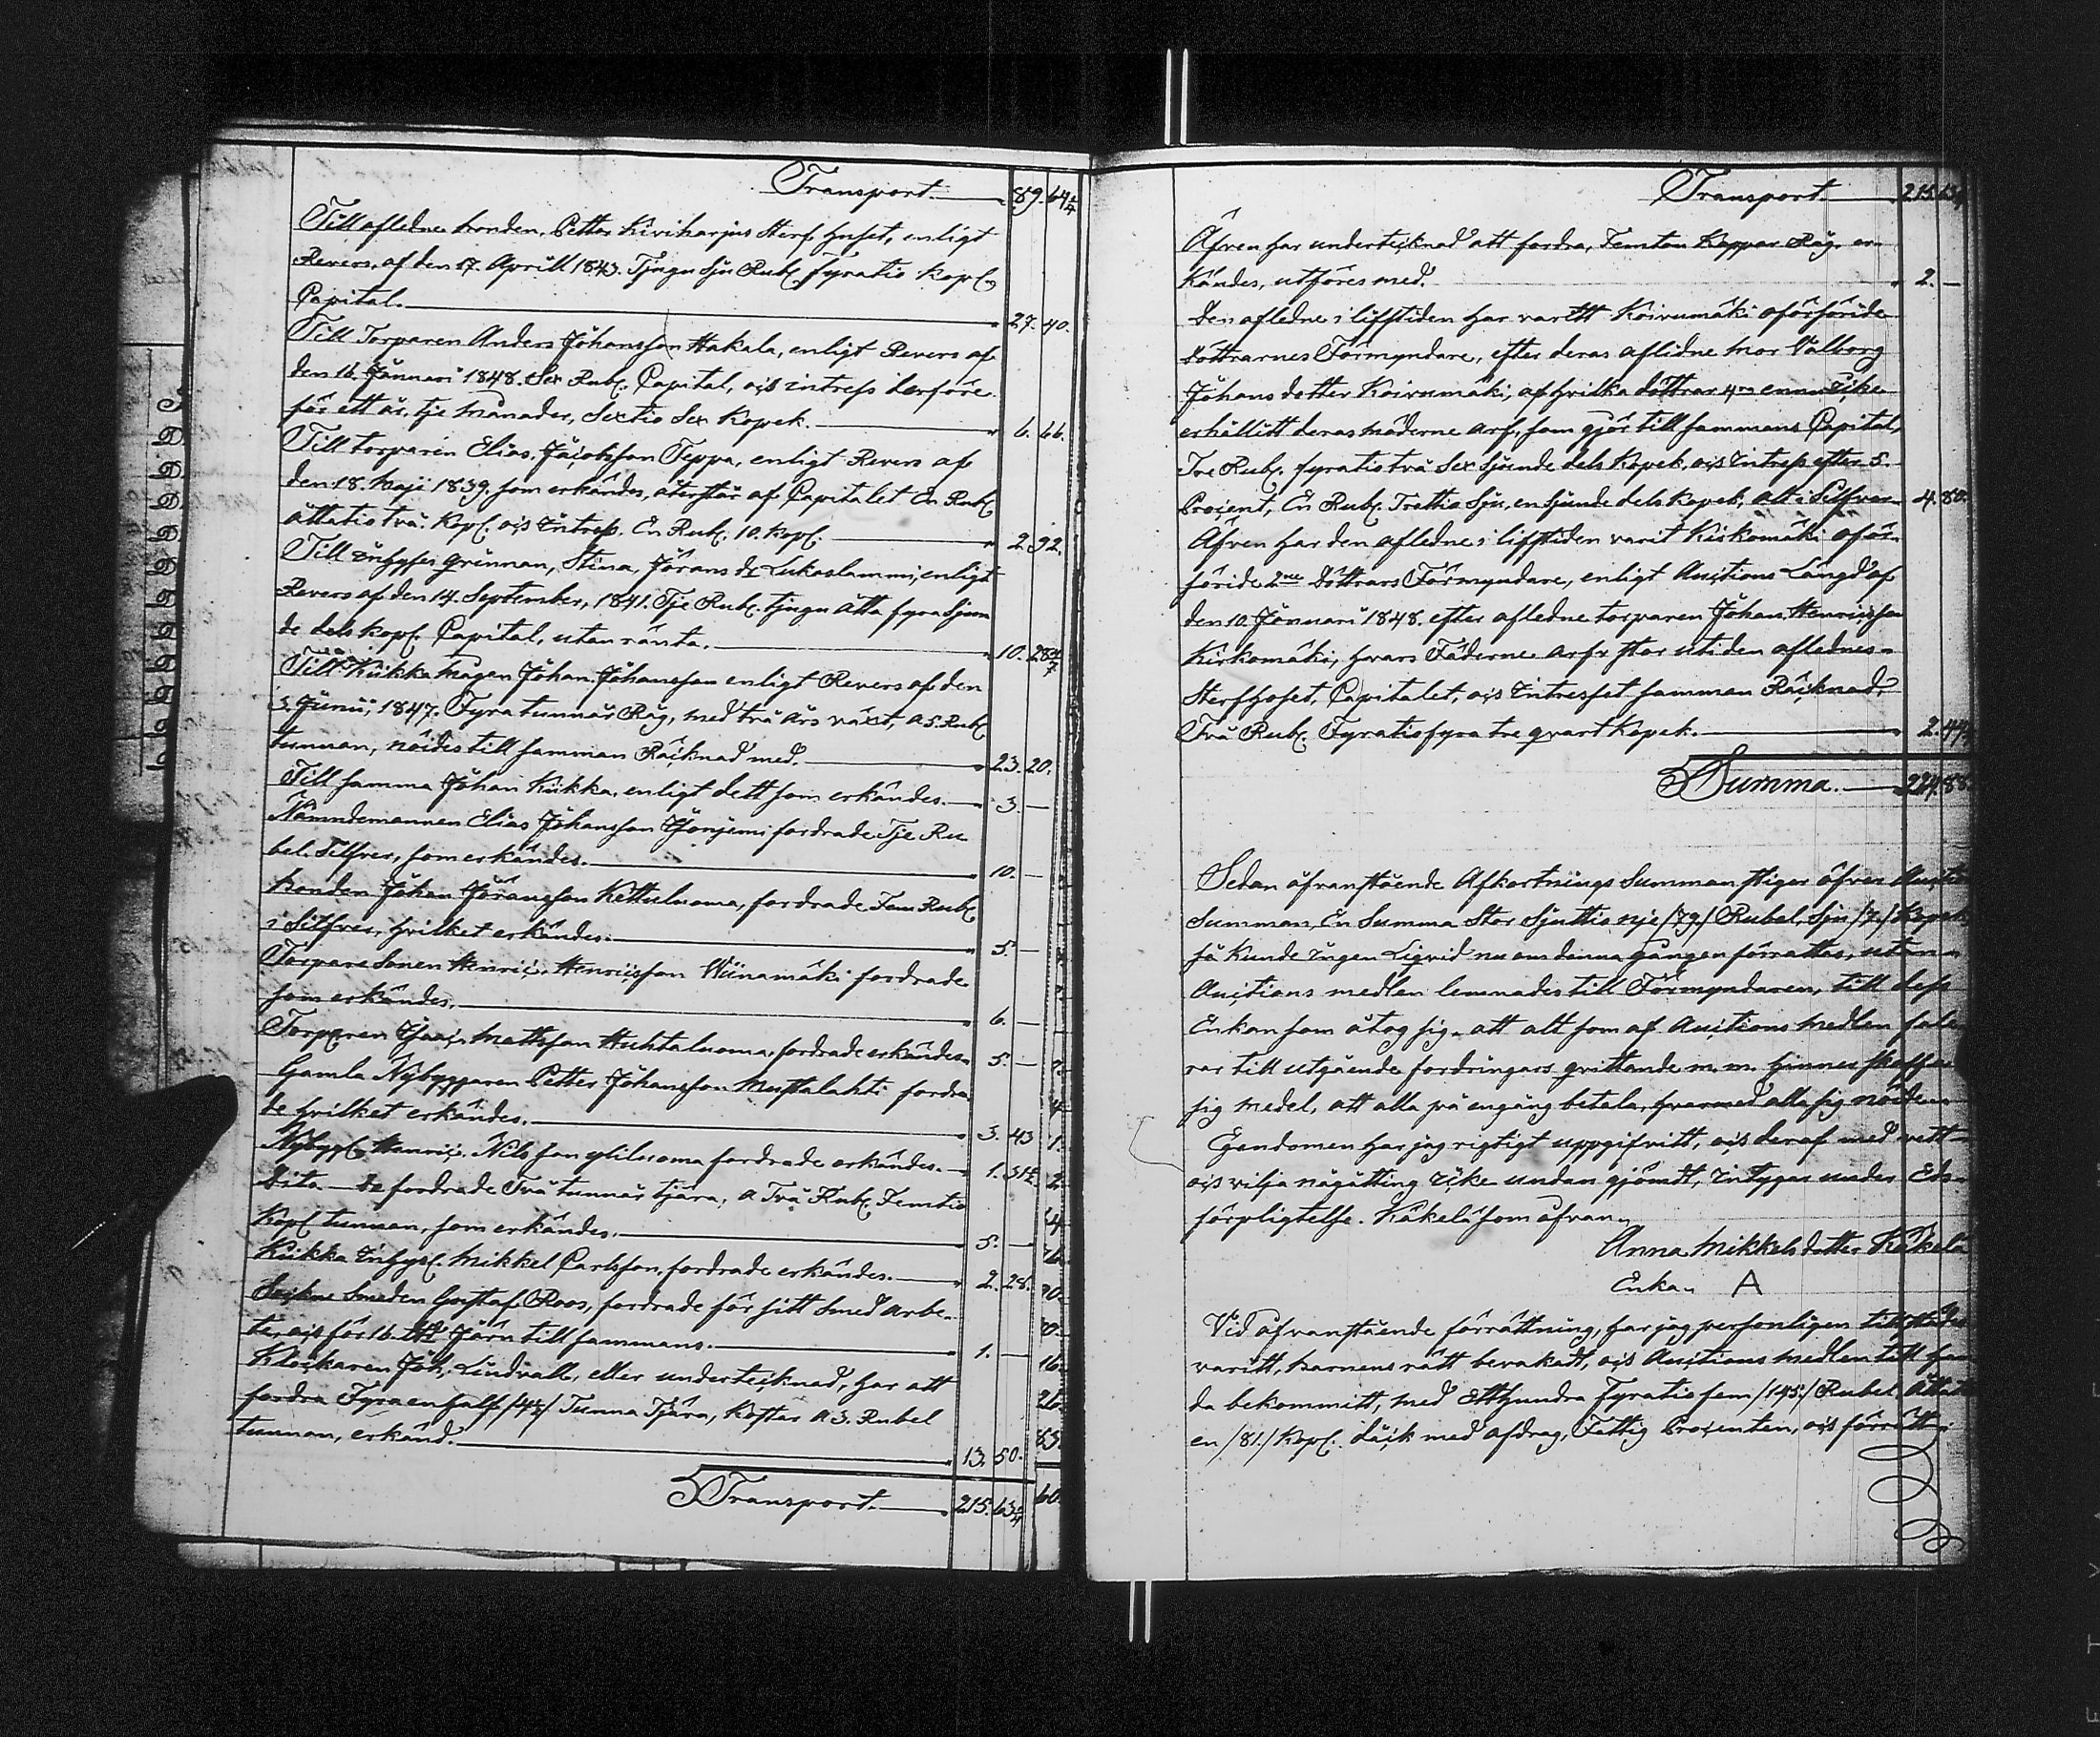 Transport. 89. 64 1/4
Till aflednе bonden, Petter Kiviharjus Sterf huset, enligt
Revers, af den 17. Aprill 1843. Tjugu sju Rubl. fyratio kopl.
Capital. 27. 40.
Till Torparen Anders Johansson Hakala, enligt Revers af
den 16. Januari 1848. Sex Rubl. Capital, och intress derföre
för ett år, tje månader, Sextio Sex Kopek. 6. 66.
Till torparen Elias Jacobsson Teppa, enligt Revers af
den 18. Maji 1839. som erkändes, återstår af Capitalet En Rubl.
åttatio två Kopl. och Intress. En Rubl. 10. Kopl. 2. 92.
Till Inhyses qvinnan, Stina, Jörans dr Lukaslammi, enligt
Revers af den 14. September, 1841. Tje Rubl. tjugu åtta fyra sjun
de dels kopl. Capital, utan ränta. 10. 28 4/7
Till Kiikka magen Johan Johansson enligt Revers af den
3. Junii, 1847. Fyra tunnår Råg, med två års växt, a 5. Rubl.
tunnan, nöides till samman Räcknad med. 23. 20.
Till samma Johan Kiikka, enligt dett som erkändes. 3. —
Nämndemannen Elias Johansson fordrade Tje Ru
bel Silfver, som erkändes. 10. —
bonden Johan Göransson Kettuluoma, fordrade Fem Rubl.
i Silfver, hvilket erkändes. 5. —
Torpare Sonen Henric Henricsson Viinamäki fordrade
som erkändes. 6. —
Torparen Isaac Mattsson Huhtaluoma fordrade erkändes. 5. —
Gamla Nybyggaren Petter Johansson Mustalahti fordra
de hvilket erkändes. 3. 43
Nybygg. Henric Nilsson Yliluoma fordrade erkändes. 1. 31
Dito — De fordrade Två tunnår tjära, a Två Rubl. Femtio
Kopl tunnan, som erkändes. 5. —
Kiikka Inhys. Mikkel Carlsson, fordrade erkändes. 2. 28.
Sockne Smeden Gustaf Roos, fordrade för sitt Smed arbe-
te, och för 16. Järn till sammans. 1. —
Klockaren Joh. Lindvall, eller undertecknad, har att
fordra Fyra en half /4½/ Tunna Tjära, Koster a 3. Rubel
tunnan, erkänd. 13. 50.
Transport. 215. 63 1/4
Transport. 215. 63
Äfven har undertecknad att fordra, Femton Kappar Råg, er-
kändes, utföres med. 2. —
Den aflednе i lifstiden har varitt Koivumäki oförsöride
döttrarnes Förmyndare, efter deras aflidne mor Valborg
Johans dotter Koivumäki, af hvilka döttrar 4ra ennu icke
erhållitt deras möderne arf, som gjör till sammans Capital,
Tre Rubl. fyratio två Sex sjunde dels Kopek, och Intress efter 5.
Procent, En Rubl. Trettio Sju, en sjunde dels kopek, alt i Silfver 4. 80.
Äfven har den aflednе i lifstiden varit Kiskomäki oför-
söride 2ne Döttrars Förmyndare, enligt Auctions Längd af
den 10. Januari 1848. efter aflednе torparen Johan Henricsson
Kiskomäki, hvars Fäderne arf står uti den aflednes
Sterfhuset, Capitalet, och Intresset samman Räcknad,
Två Rubl. Fyratio fyra tre qvart Kopek. 2. 44
Summa. 224. 88
Sedan ofvanstående Afkortnings Summan stiger öfver
Summan, En Summa Stor Sjuttio nije /79/ Rubel, Sju /7/ Kopek
så kunde Ingen Liqvid nu om denna gången förrättas, utan
Auctions medlen lemnades till Förmyndaren, till dess
Enkan som åtog sig, att alt som af Auctions medlen
till utgående fordringars qvittande m. m. hinner
sig medel, att alla på engång betala, hvarmed alla sig nöide
Egendomen har jag rigtigt uppgifvitt, och deraf med vett
och vilja någåtting icke undan gjömdt, Intygas under Eds
förpligtelse. Käkelä som ofvan.
Anna Mikkels dotter Käkelä
Enka A
Vid ofvanstående förrättning, har jag personligen
varitt, barnens rätt bevakadt, och Auctions medlen till
da bekommitt, med Etthundra Fyratio fem /145/ Rubel
en /81/ Kopl. däck med afdrag, Fattig Procenten, och